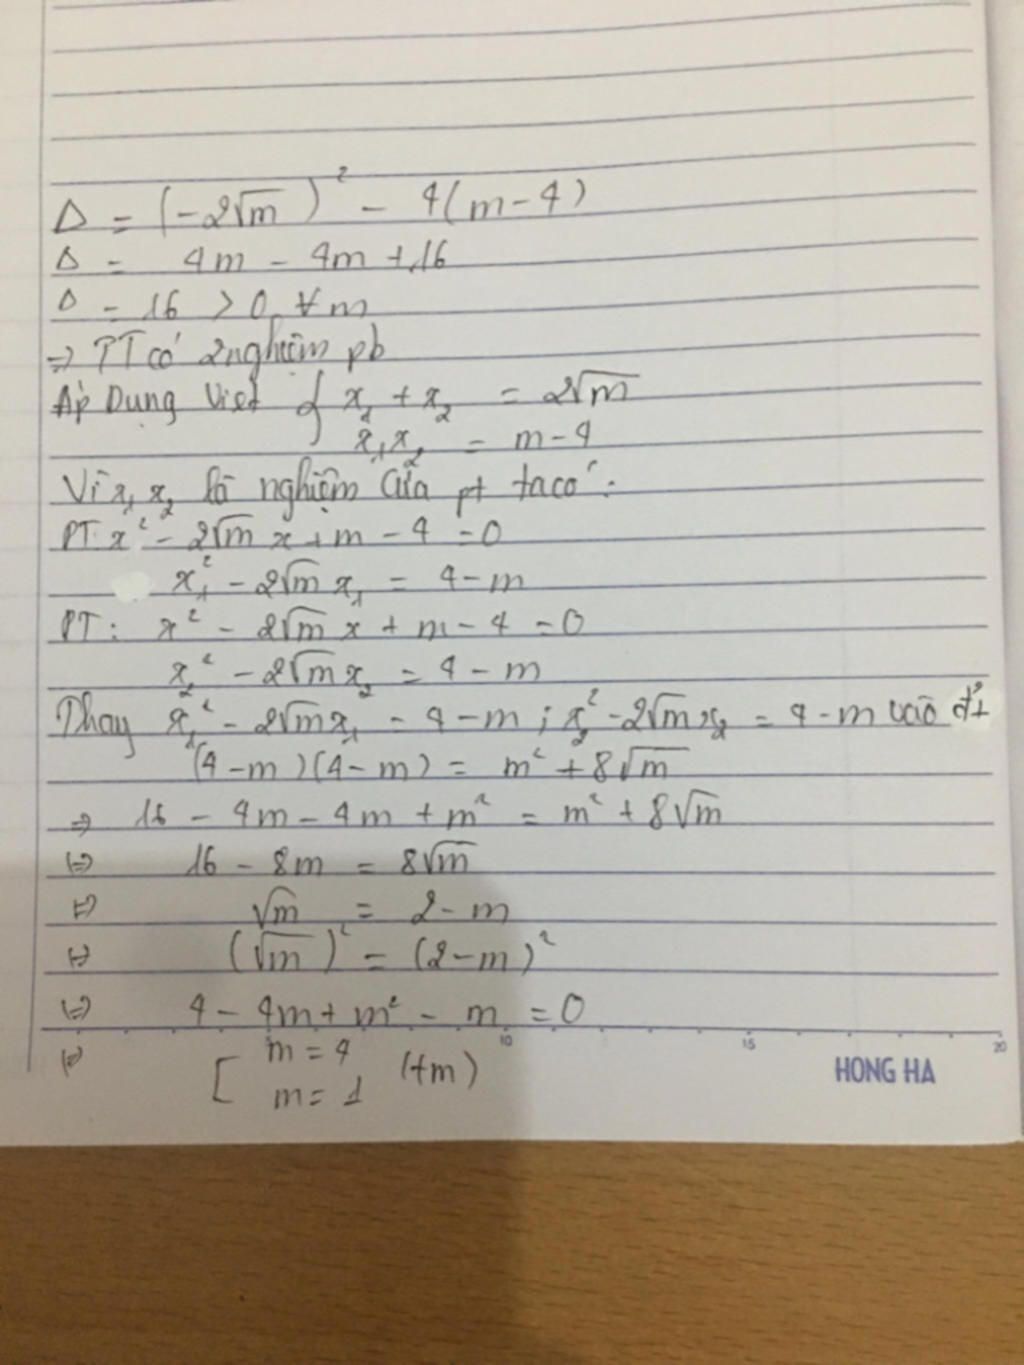 Δ = (-2√m)² - 4(m-4)
Δ = 4m - 4m + 16
Δ = 16 > 0 ∀m
=> PT có 2 nghiệm pb
Áp Dụng Viet { x₁ + x₂ = 2√m
x₁x₂ = m-4
Vì x₁ x₂ là nghiệm của pt ta có:
PT: x² - 2√m x + m - 4 = 0
x₁² - 2√m x₁ = 4-m
PT: x² - 2√m x + m - 4 = 0
x₂² - 2√m x₂ = 4 - m
Thay x₁² - 2√m x₁ = 4-m ; x₂² - 2√m x₂ = 4-m vào
(4-m)(4-m) = m² + 8√m
=> 16 - 4m - 4m + m² = m² + 8√m
(=) 16 - 8m = 8√m
(=) √m = 2-m
(=) (√m)² = (2-m)²
(=) 4 - 4m + m² - m = 0
(=) [ m = 4 (tm)
m = 1
10 15 20
HONG HA